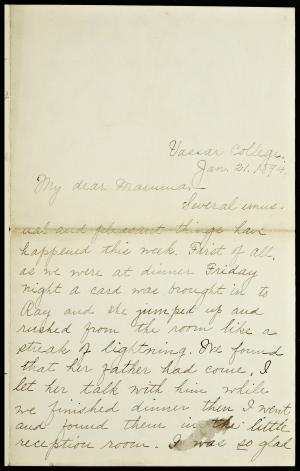 Vassar College.
Jan. 21. 1894.
My dear Mamma,-
Several unus-
ual and pleasant things have
happened this week. First of all,
as we were at dinner Friday
night a card was brought in to
Ray and she jumped up and
rushed from the room like a
streak of lightning. We found
that her father had come, I
let her talk with him while
we finished dinner then I went
and found them in the little
reception room. I was so glad